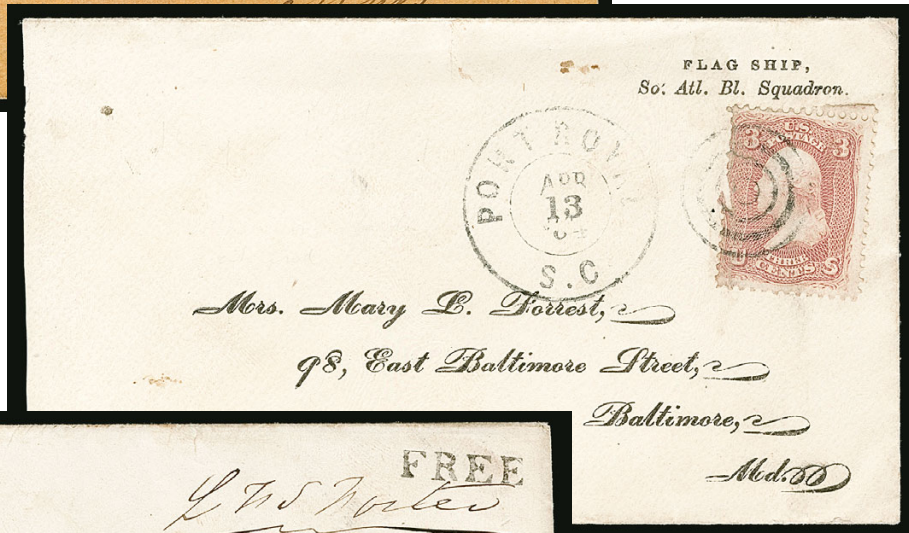 FLAG SHIP,
So: Atl. Bl. Squadron.
PORT ROYAL
APR
13
S.C
U.S.
POSTAGE
3 3
THREE
CENTS
Mrs. Mary L. Forrest,
98, East Baltimore Street,
Baltimore,
Md.
FREE